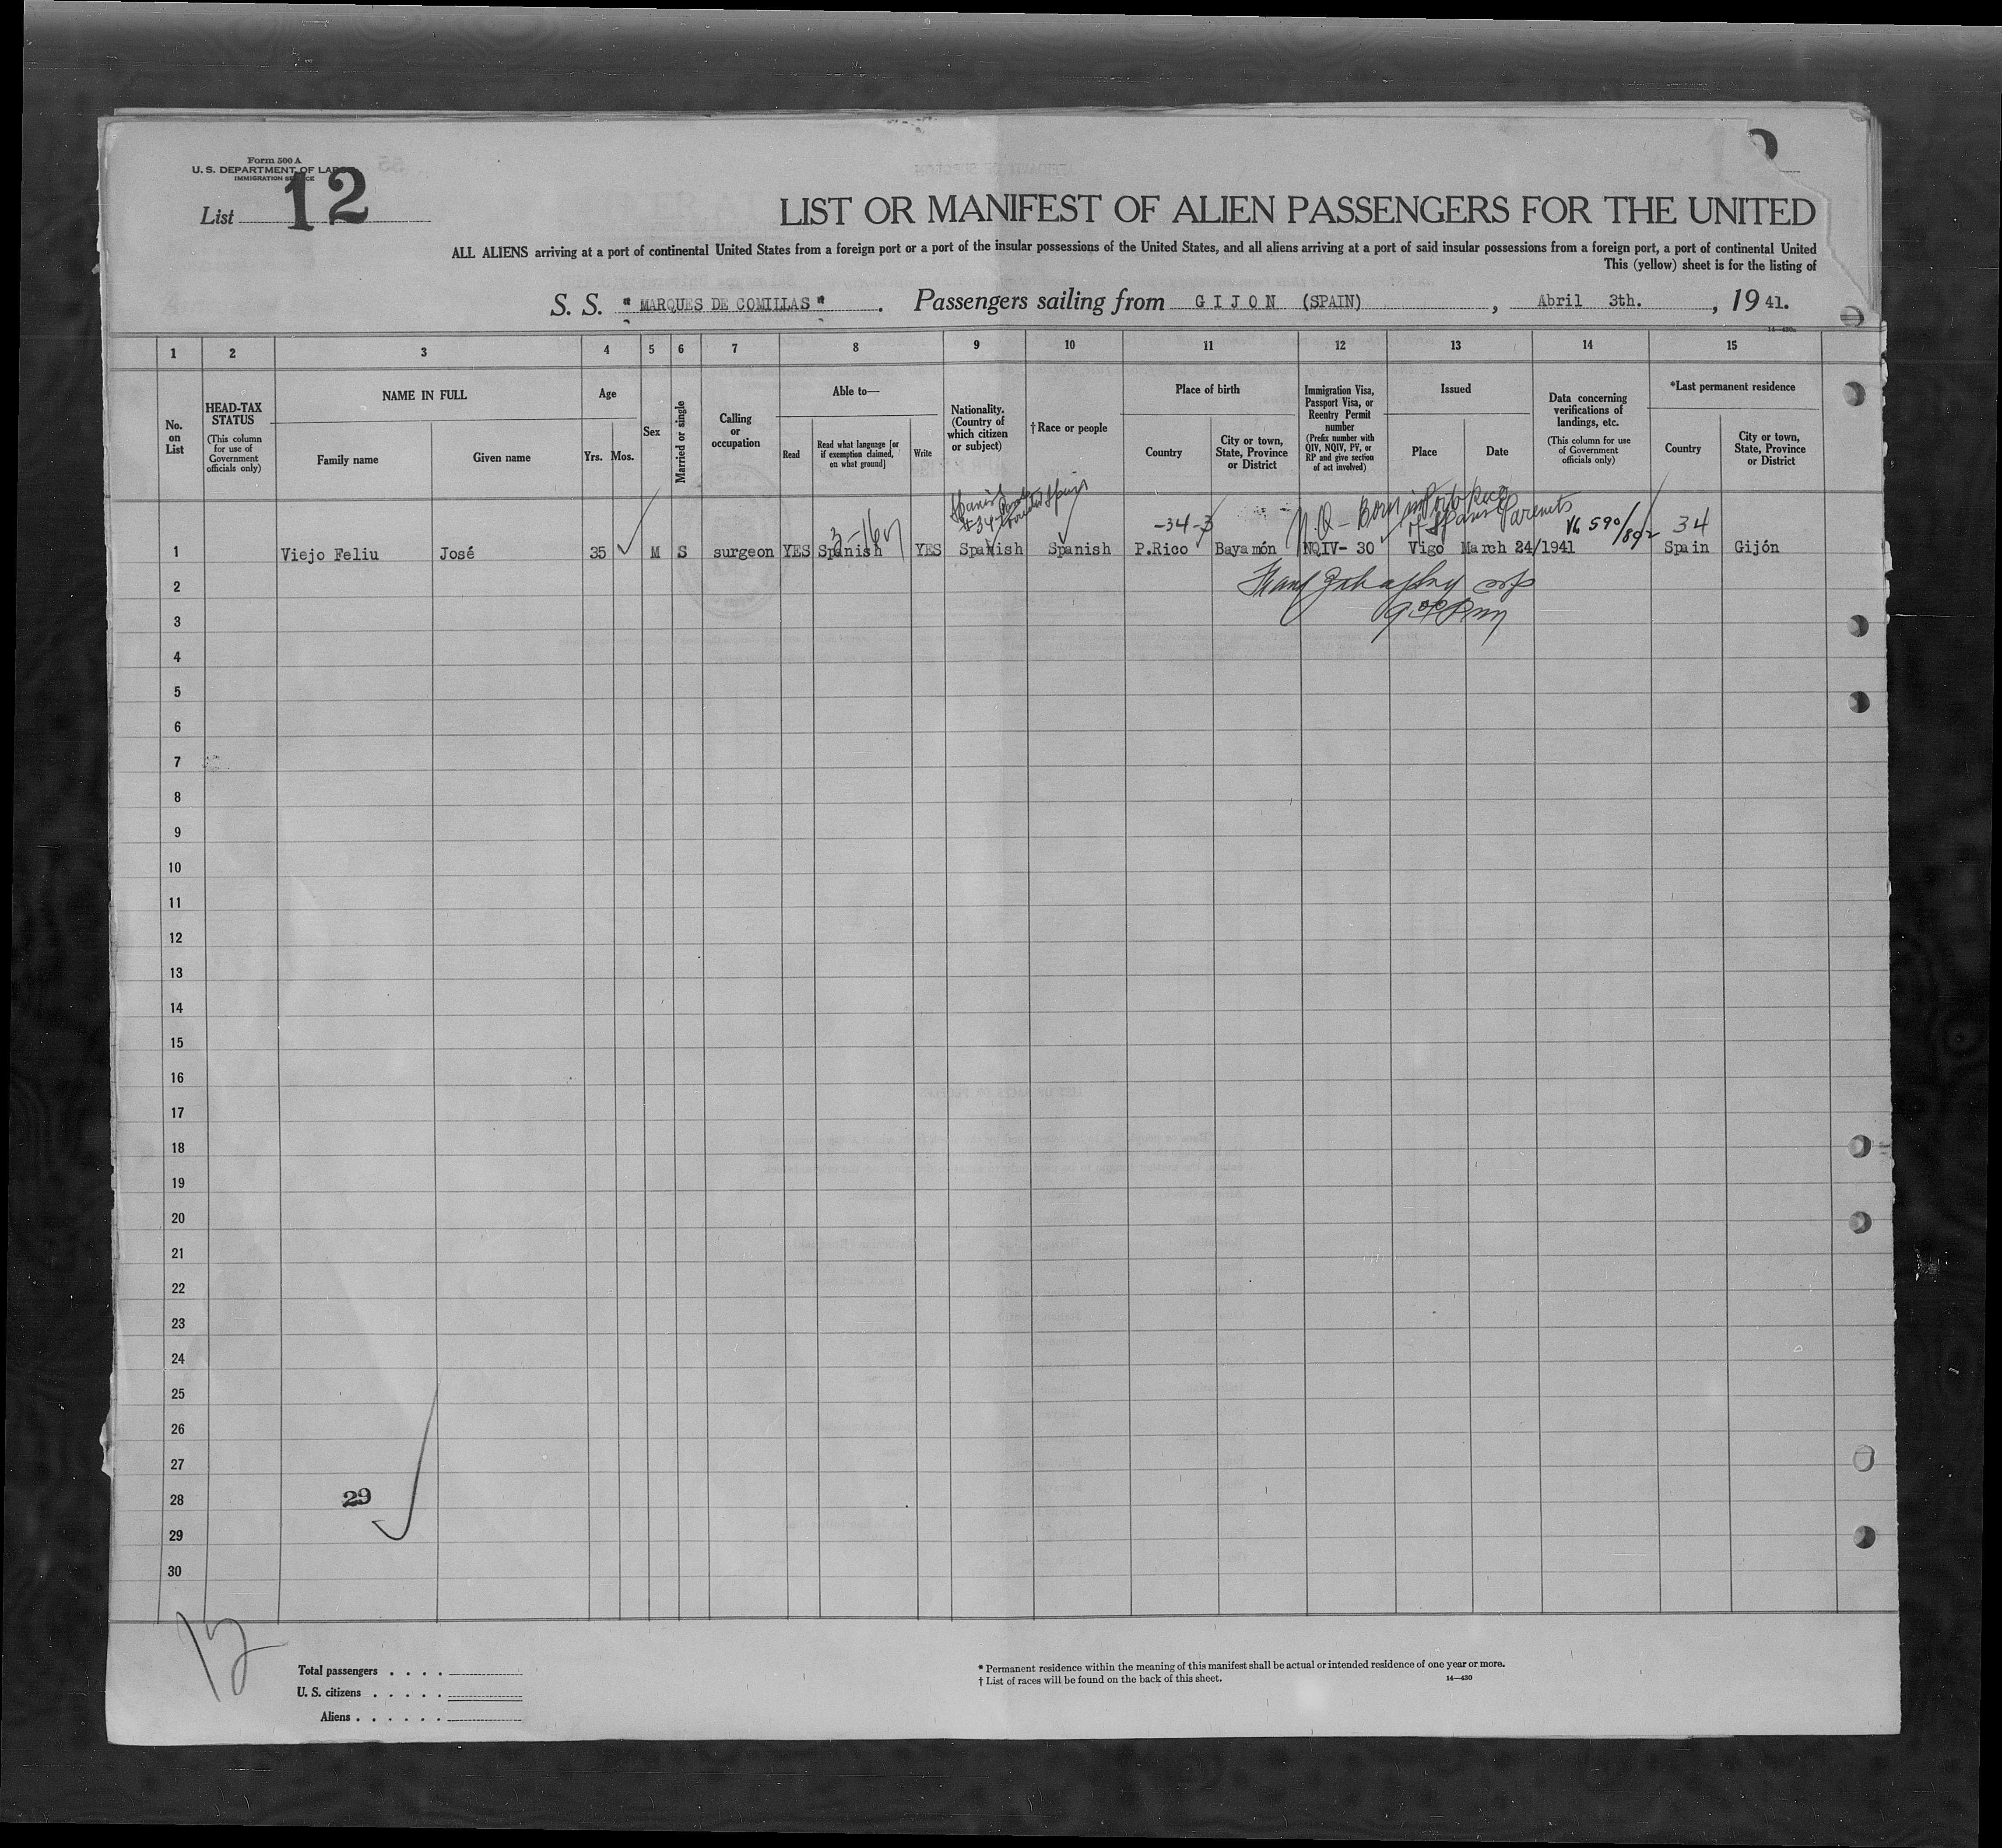 Form 500 A
U. S. DEPARTMENT OF LABOR
IMMIGRATION SERVICE
List 12
LIST OR MANIFEST OF ALIEN PASSENGERS FOR THE UNITED
ALL ALIENS arriving at a port of continental United States from a foreign port or a port of the insular possessions of the United States, and all aliens arriving at a port of said insular possessions from a foreign port, a port of continental United
This (yellow) sheet is for the listing of
S. S. "MARQUES DE COMILLAS". Passengers sailing from GIJON (SPAIN), Abril 3th., 1941.
14—430
1 2 3 4 5 6 7 8 9 10 11 12 13 14 15
No. on List
HEAD-TAX STATUS
(This column for use of Government officials only)
NAME IN FULL
Family name
Given name
Age
Yrs. Mos.
Sex
Married or single
Calling or occupation
Able to—
Read
Read what language [or if exemption claimed, on what ground]
Write
Nationality. (Country of which citizen or subject)
†Race or people
Place of birth
Country
City or town, State, Province or District
Immigration Visa, Passport Visa, or Reentry Permit number
(Prefix number with QIV, NQIV, PV, or RP and give section of act involved)
Issued
Place
Date
Data concerning verifications of landings, etc.
(This column for use of Government officials only)
*Last permanent residence
Country
City or town, State, Province or District
N.Q - Born in Porto Rico
of Spanish Parents
3-160 -34-3 V6 590/892 34
1 Viejo Feliu José 35 M S surgeon YES Spanish YES Spanish Spanish P.Rico Bayamón NQIV- 30 Vigo March 24/1941 Spain Gijón
2
3
4
5
6
7
8
9
10
11
12
13
14
15
16
17
18
19
20
21
22
23
24
25
26
27
28
29
29
30
12
Total passengers . . . .
U. S. citizens . . . . .
Aliens . . . . . .
* Permanent residence within the meaning of this manifest shall be actual or intended residence of one year or more.
† List of races will be found on the back of this sheet.
14—430